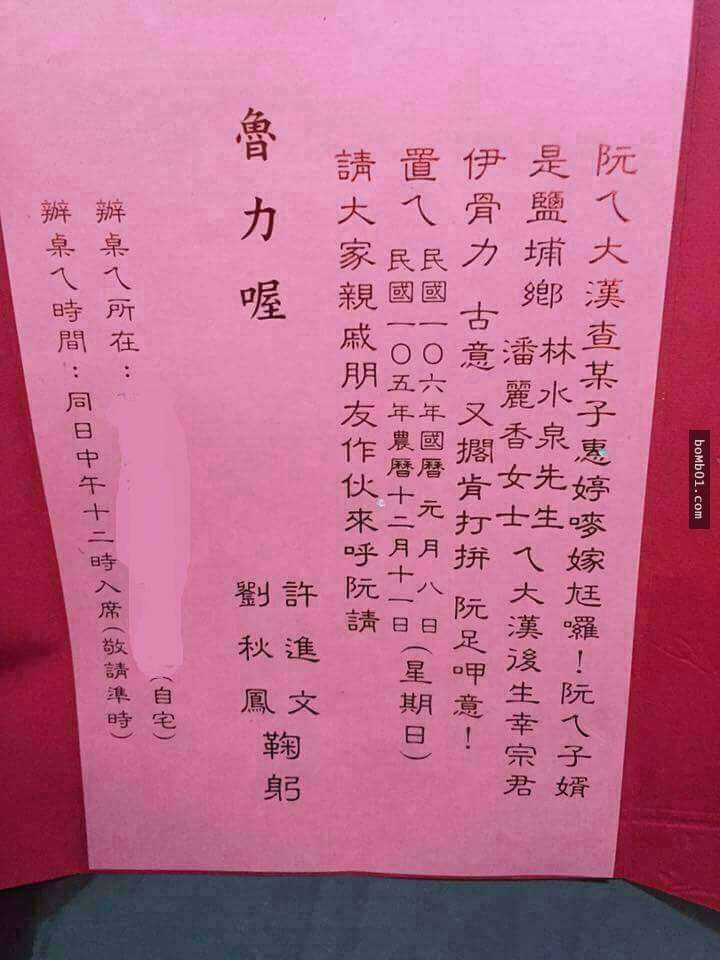 阮ㄟ大漢查某子惠婷嘜嫁尪囉！阮ㄟ子婿
是鹽埔鄉 林水泉先生
潘麗香女士 ㄟ大漢後生幸宗君
伊骨力 古意 又擱肯打拼 阮足呷意！
置ㄟ 民國一〇六年國曆 元月八日
民國一〇五年農曆十二月十一日 (星期日)
請大家親戚朋友作伙來呼阮請
許進文
劉秋鳳
鞠躬
魯力喔
辦桌ㄟ所在： (自宅)
辦桌ㄟ時間：同日中午十二時入席(敬請準時)
boMb01.com